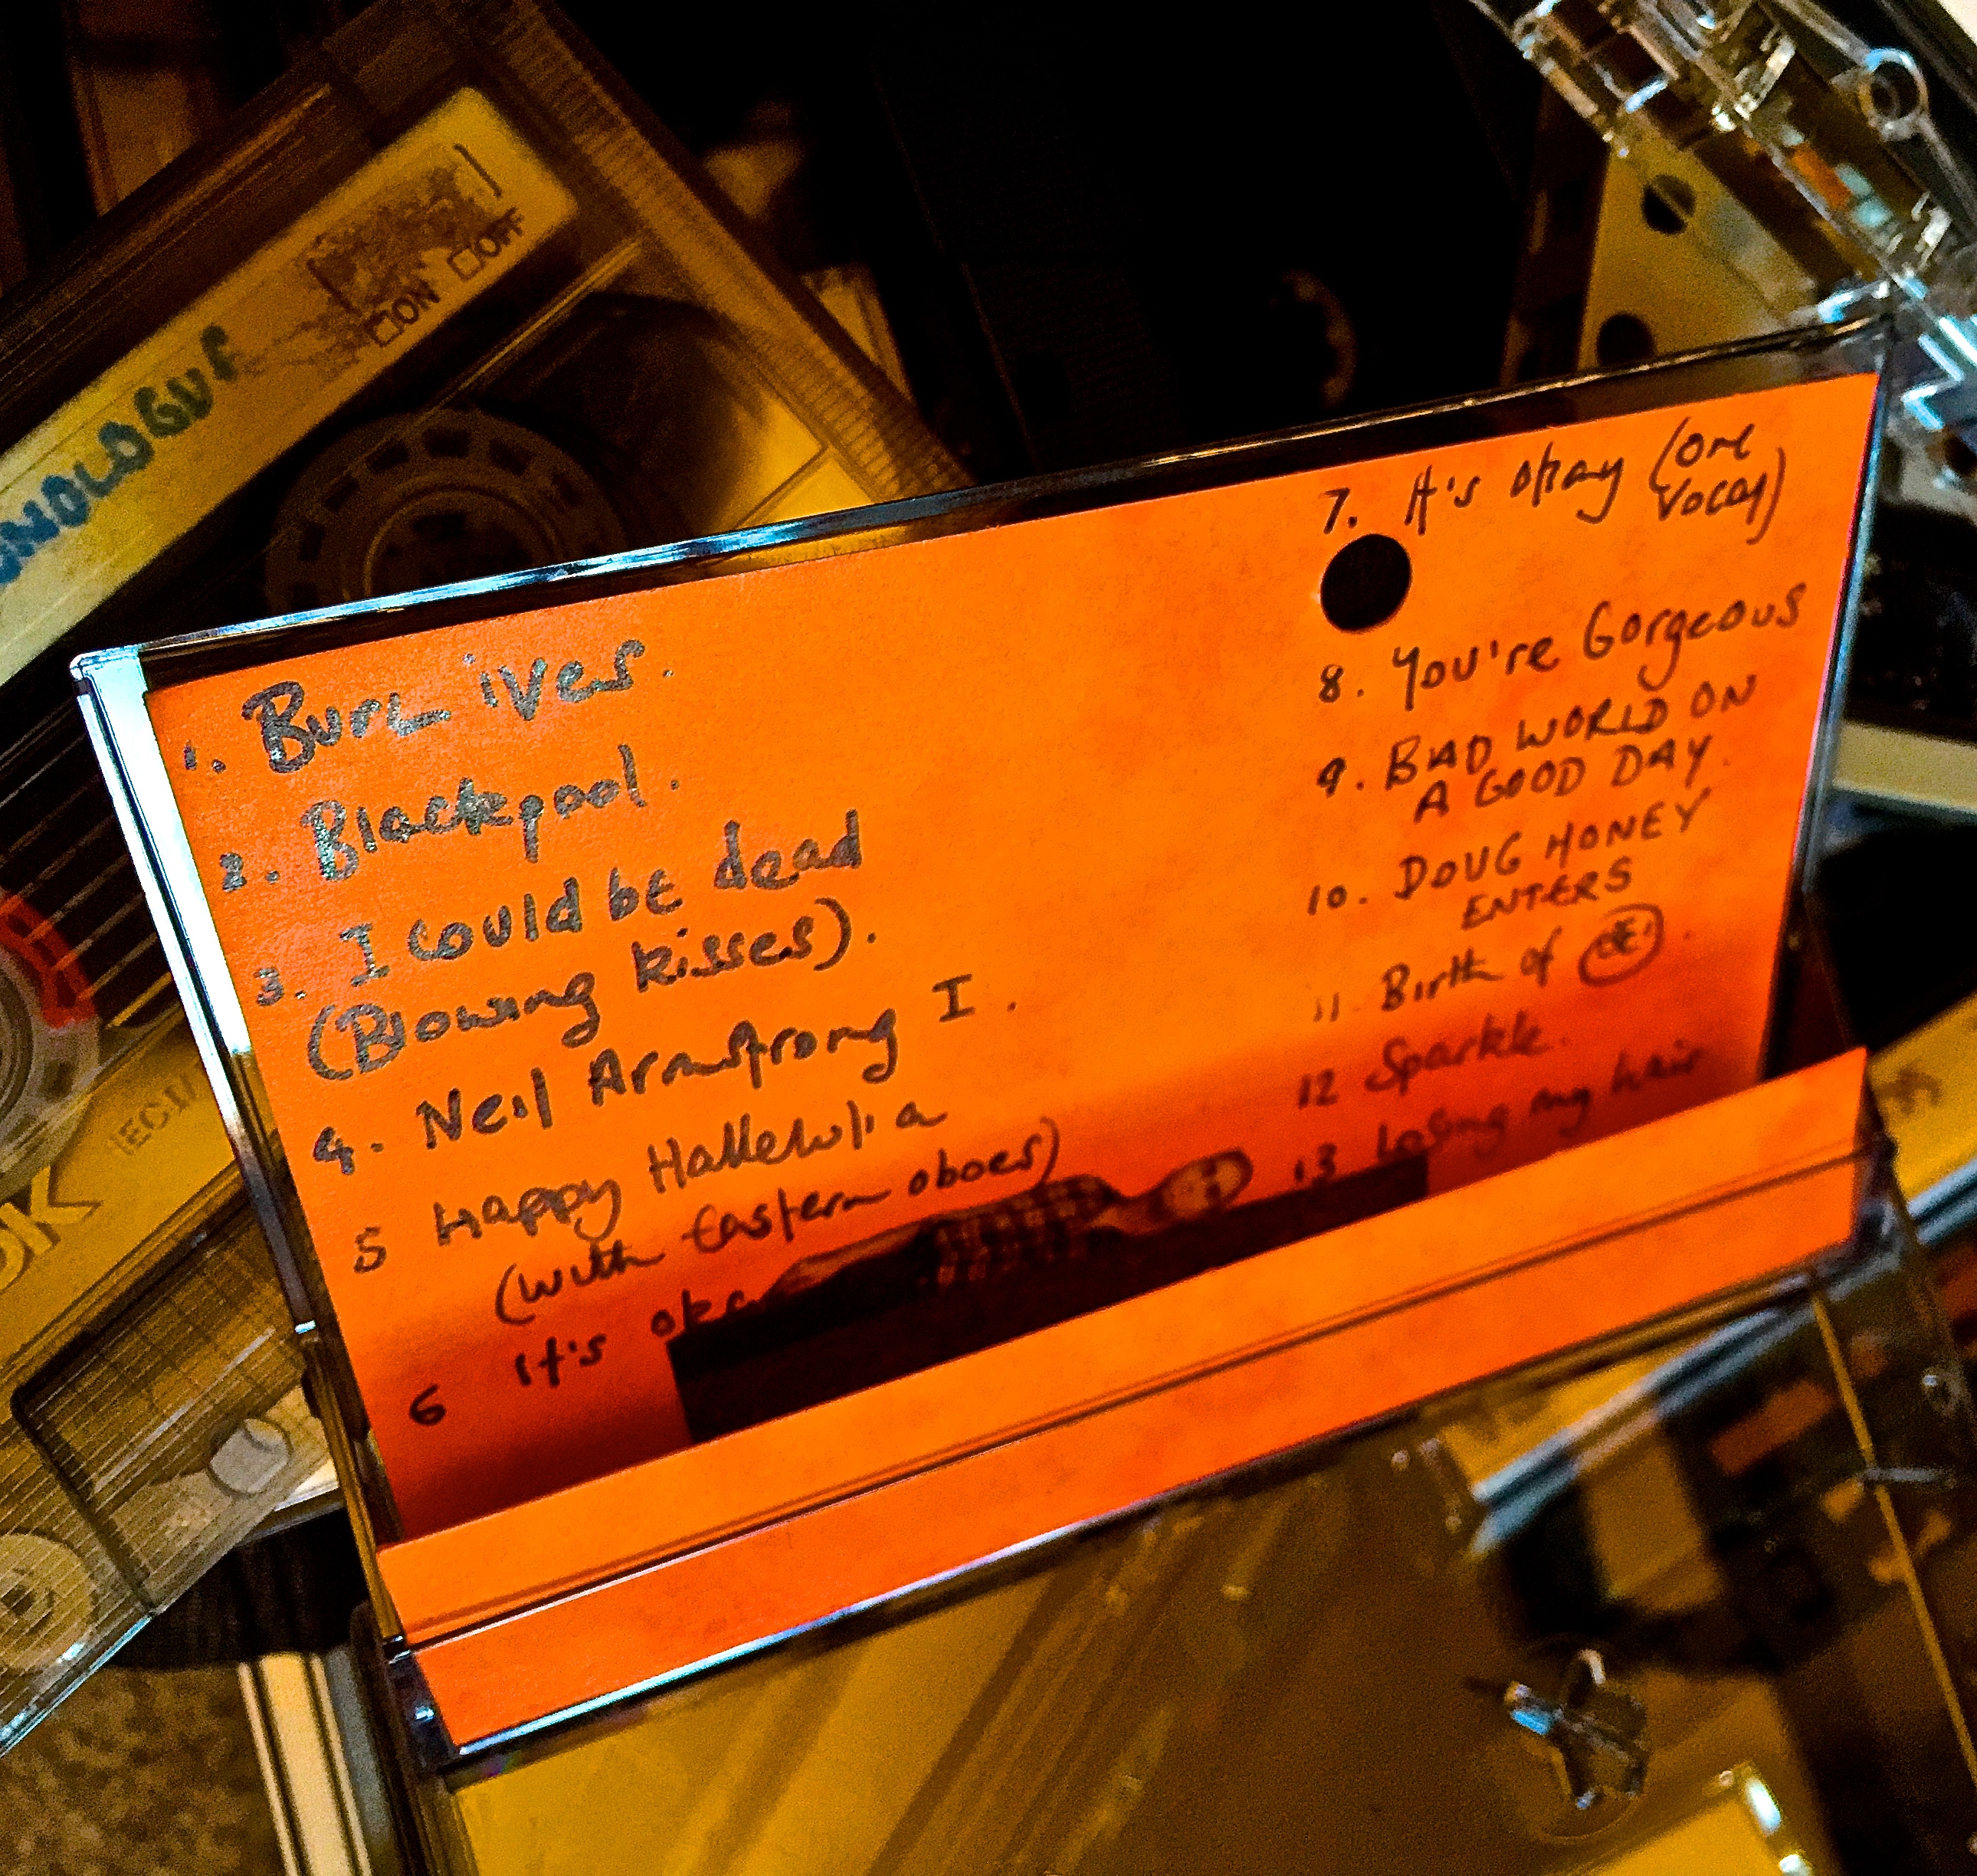 □ON □OFF
IECI/
DK
1. Burl ives.
2. Blackpool.
3. I could be dead
(Blowing kisses).
4. Neil Armstrong I.
5 Happy Hallelulia
(with Eastern oboes)
6 it's okay
7. It's okay (one
vocal)
8. You're Gorgeous
9. BAD WORLD ON
A GOOD DAY.
10. DOUG HONEY
ENTERS
11. Birth of
12 Sparkle.
13 Losing my hair